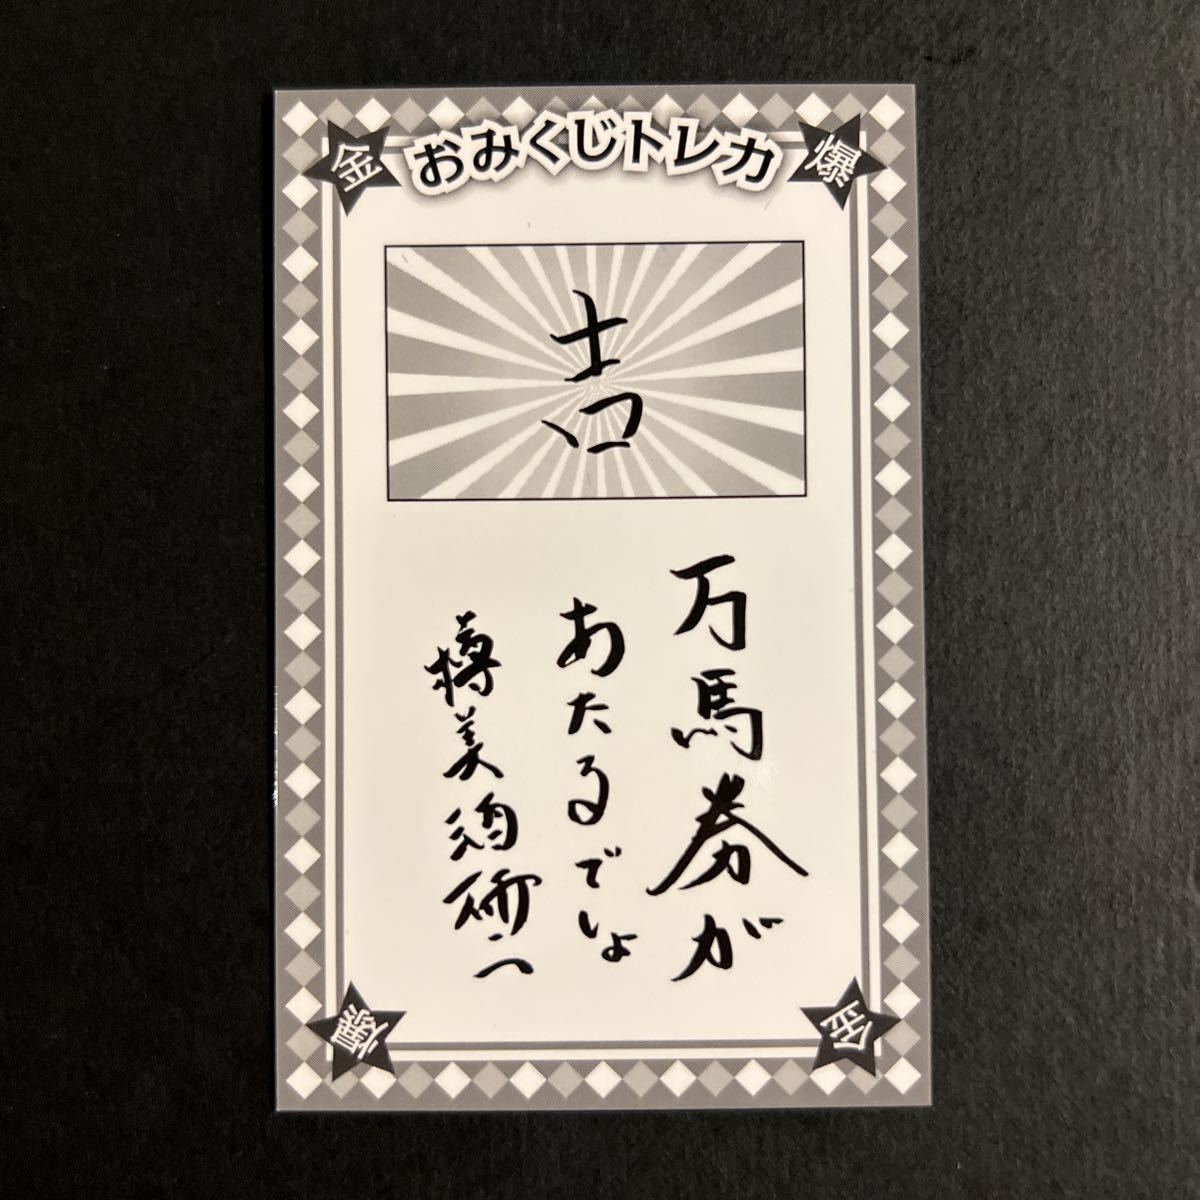 金
おみくじトレカ
爆
吉
万馬券が
あたるでしょ
樽美酒研二
爆
金